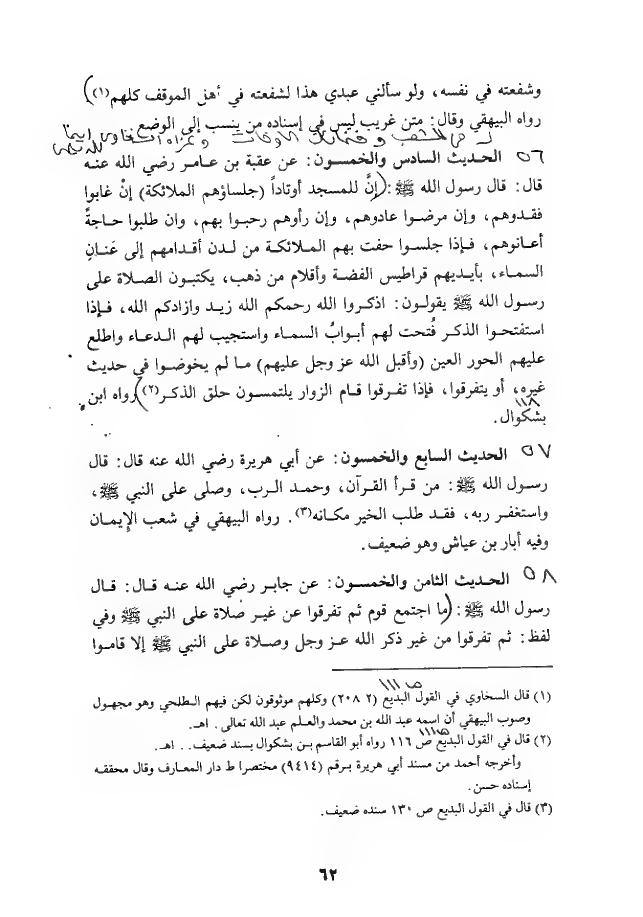 وشفعته في نفسه، ولو سألني عبدي هذا لشفعته في أهل الموقف كلهم(١)
رواه البيهقي وقال: متن غريب ليس في إسناده من ينسب إلى الوضع
٥٦ الحديث السادس والخمسون: عن عقبة بن عامر رضي الله عنه
قال: قال رسول الله ﷺ: (إنَّ للمسجد أوتاداً (جلساؤهم الملائكة) إنْ غابوا
فقدوهم، وإن مرضوا عادوهم، وإن رأوهم رحبوا بهم، وان طلبوا حاجةً
أعانوهم، فإذا جلسوا حفت بهم الملائكة من لدن أقدامهم إلى عَنانِ
السماء، بأيديهم قراطيس الفضة وأقلام من ذهب، يكتبون الصلاة على
رسول الله ﷺ يقولون: اذكروا الله رحمكم الله زيد وازادكم الله، فإذا
استفتحوا الذكر فُتحت لهم أبوابُ السماء واستجيب لهم الدعاء واطلع
عليهم الحور العين (وأقبل الله عز وجل عليهم) ما لم يخوضوا في حديث
غيره، أو يتفرقوا، فإذا تفرقوا قام الزوار يلتمسون حلق الذكر(٢)) رواه ابن
١١٨
بشكوال.
٥٧ الحديث السابع والخمسون: عن أبي هريرة رضي الله عنه قال: قال
رسول الله ﷺ: من قرأ القرآن، وحمد الرب، وصلى على النبي ﷺ،
واستغفر ربه، فقد طلب الخير مكانه(٣). رواه البيهقي في شعب الإيمان
وفيه أبار بن عياش وهو ضعيف.
٥٨ الحديث الثامن والخمسون: عن جابر رضي الله عنه قال: قال
رسول الله ﷺ: (ما اجتمع قوم ثم تفرقوا عن غير صلاة على النبي ﷺ وفي
لفظ: ثم تفرقوا من غير ذكر الله عز وجل وصلاة على النبي ﷺ إلا قاموا
ص ١١١
(١) قال السخاوي في القول البديع (٢ ٢٠٨) وكلهم موثوقون لكن فيهم الطلحي وهو مجهول
وصوب البيهقي أن اسمه عبد الله بن محمد والعلم عبد الله تعالى. اهـ.
(٢) قال في القول البديع ص ١١٦ رواه أبو القاسم بن بشكوال بسند ضعيف.. اهـ.
وأخرجه أحمد من مسند أبي هريرة برقم (٩٤١٤) مختصرا ط دار المعارف وقال محققه
إسناده حسن.
(٣) قال في القول البديع ص ١٣٠ سنده ضعيف.
٦٢